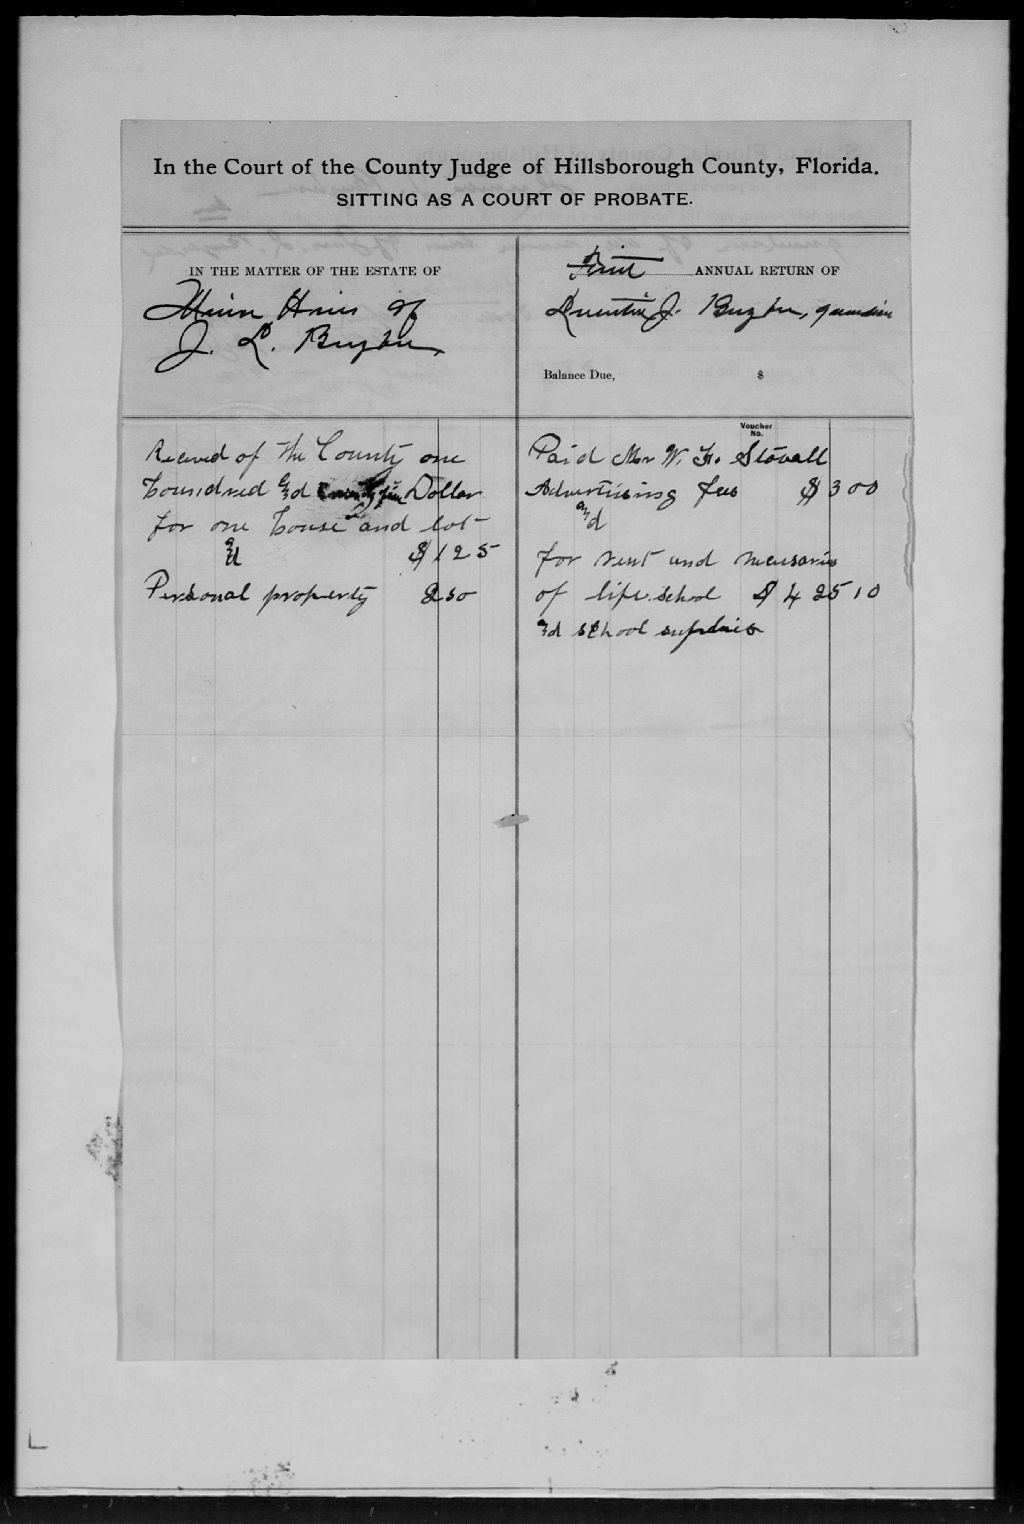 In the Court of the County Judge of Hillsborough County, Florida.
SITTING AS A COURT OF PROBATE.
IN THE MATTER OF THE ESTATE OF
Minor Heirs of
J. L.
First ANNUAL RETURN OF
J.
Balance Due, $
Received of the County one
houndred &
Dollar
for one house and lot
$ 125
Personal property 250
Voucher
No.
Paid Mr W. F. Stovall
Advertising fees $ 3 00
for rent and
of life. school $ 4 25 10
school supplies